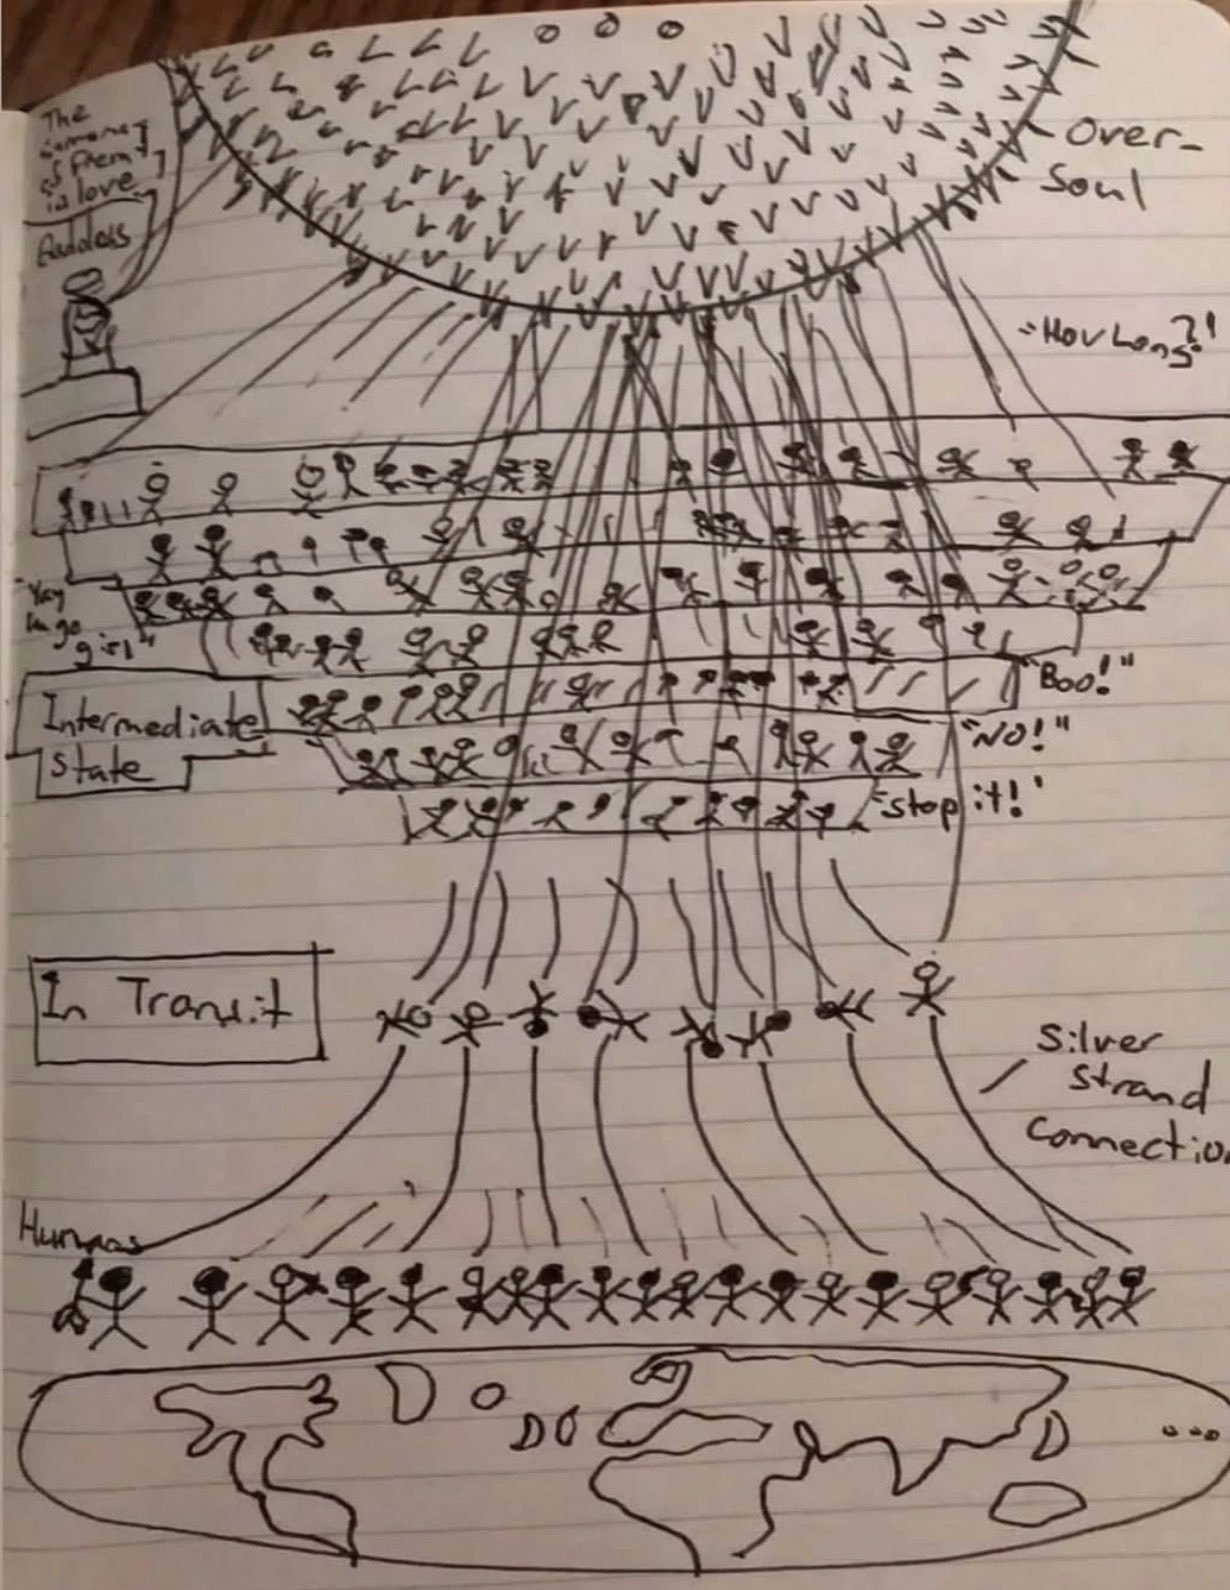 The
in love
Goddess
Over-
Soul
"How Long?!"
"Yay
go
girl"
"Boo!"
Intermediate
State
"NO!"
"Stop it!"
In Transit
Silver
Strand
Connection
Humans